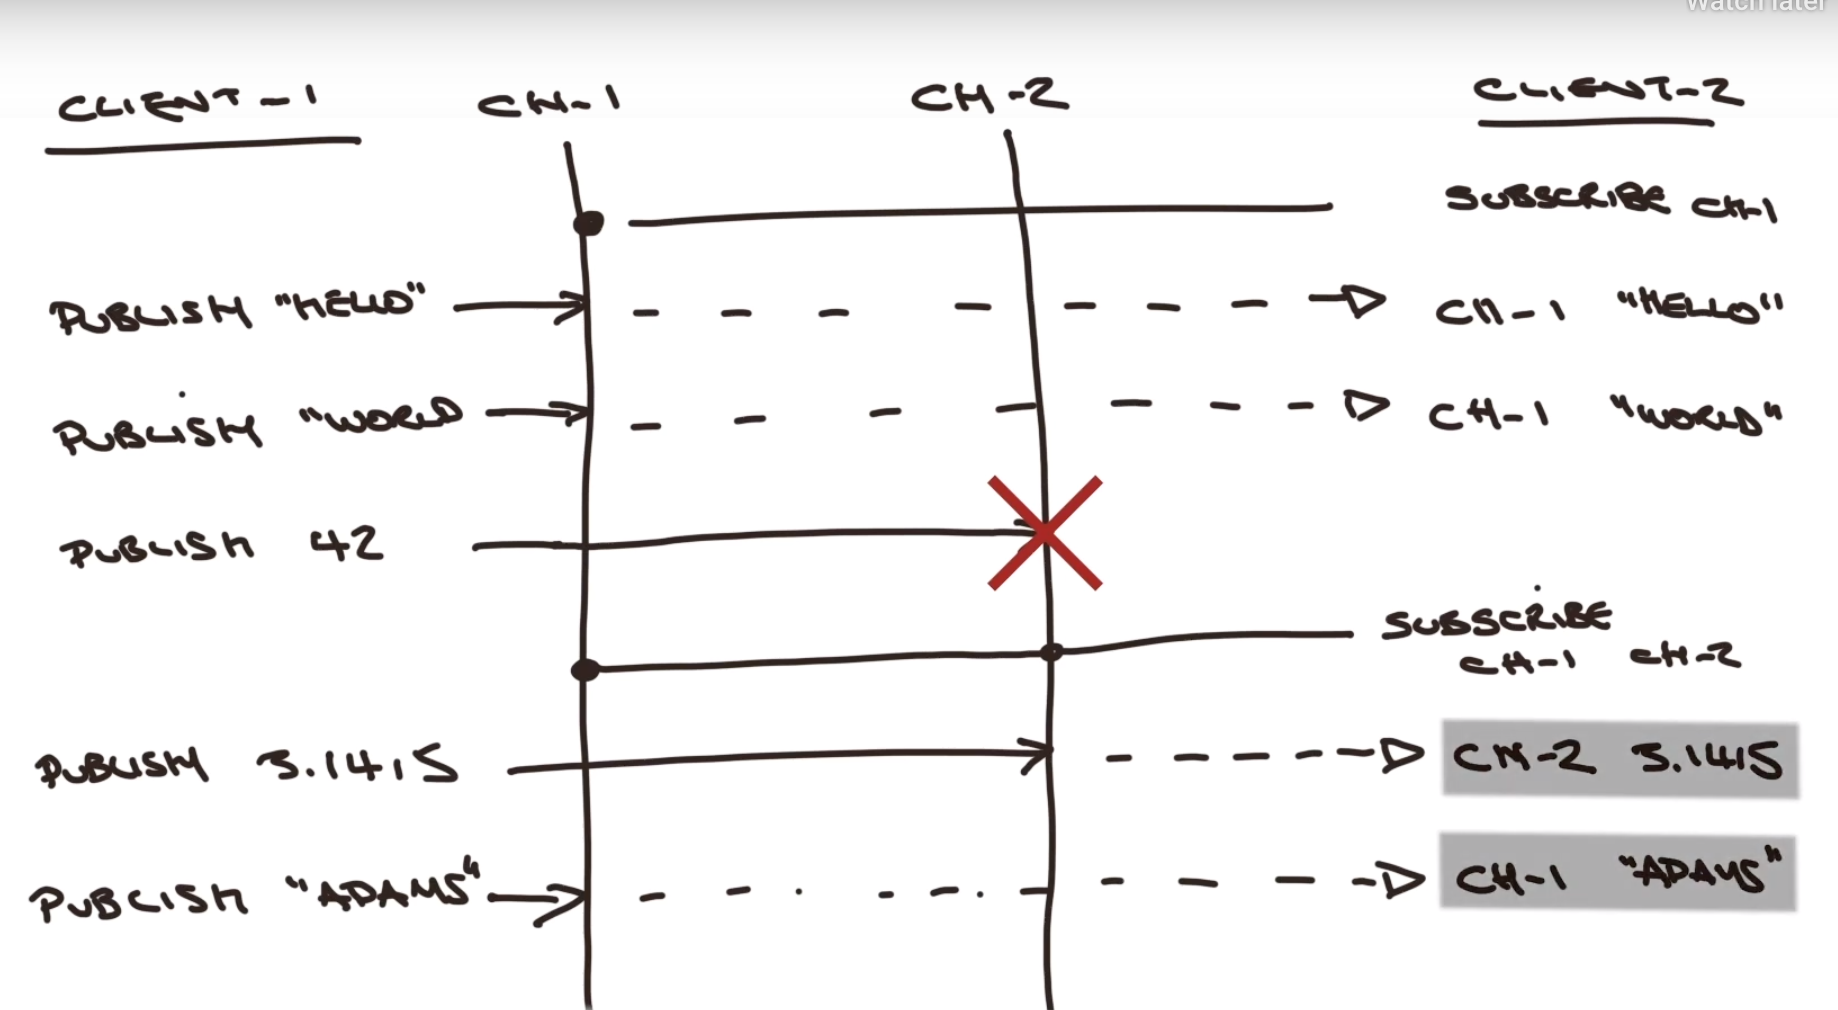 Watch later
CLIENT-1 CH-1 CH-2 CLIENT-2
SUBSCRIBE CH-1
PUBLISH "HELLO" CH-1 "HELLO"
PUBLISH "WORLD CH-1 "WORLD"
PUBLISH 42
SUBSCRIBE
CH-1 CH-2
PUBLISH 3.1415 CH-2 3.1415
PUBLISH "ADAMS" CH-1 "ADAMS"